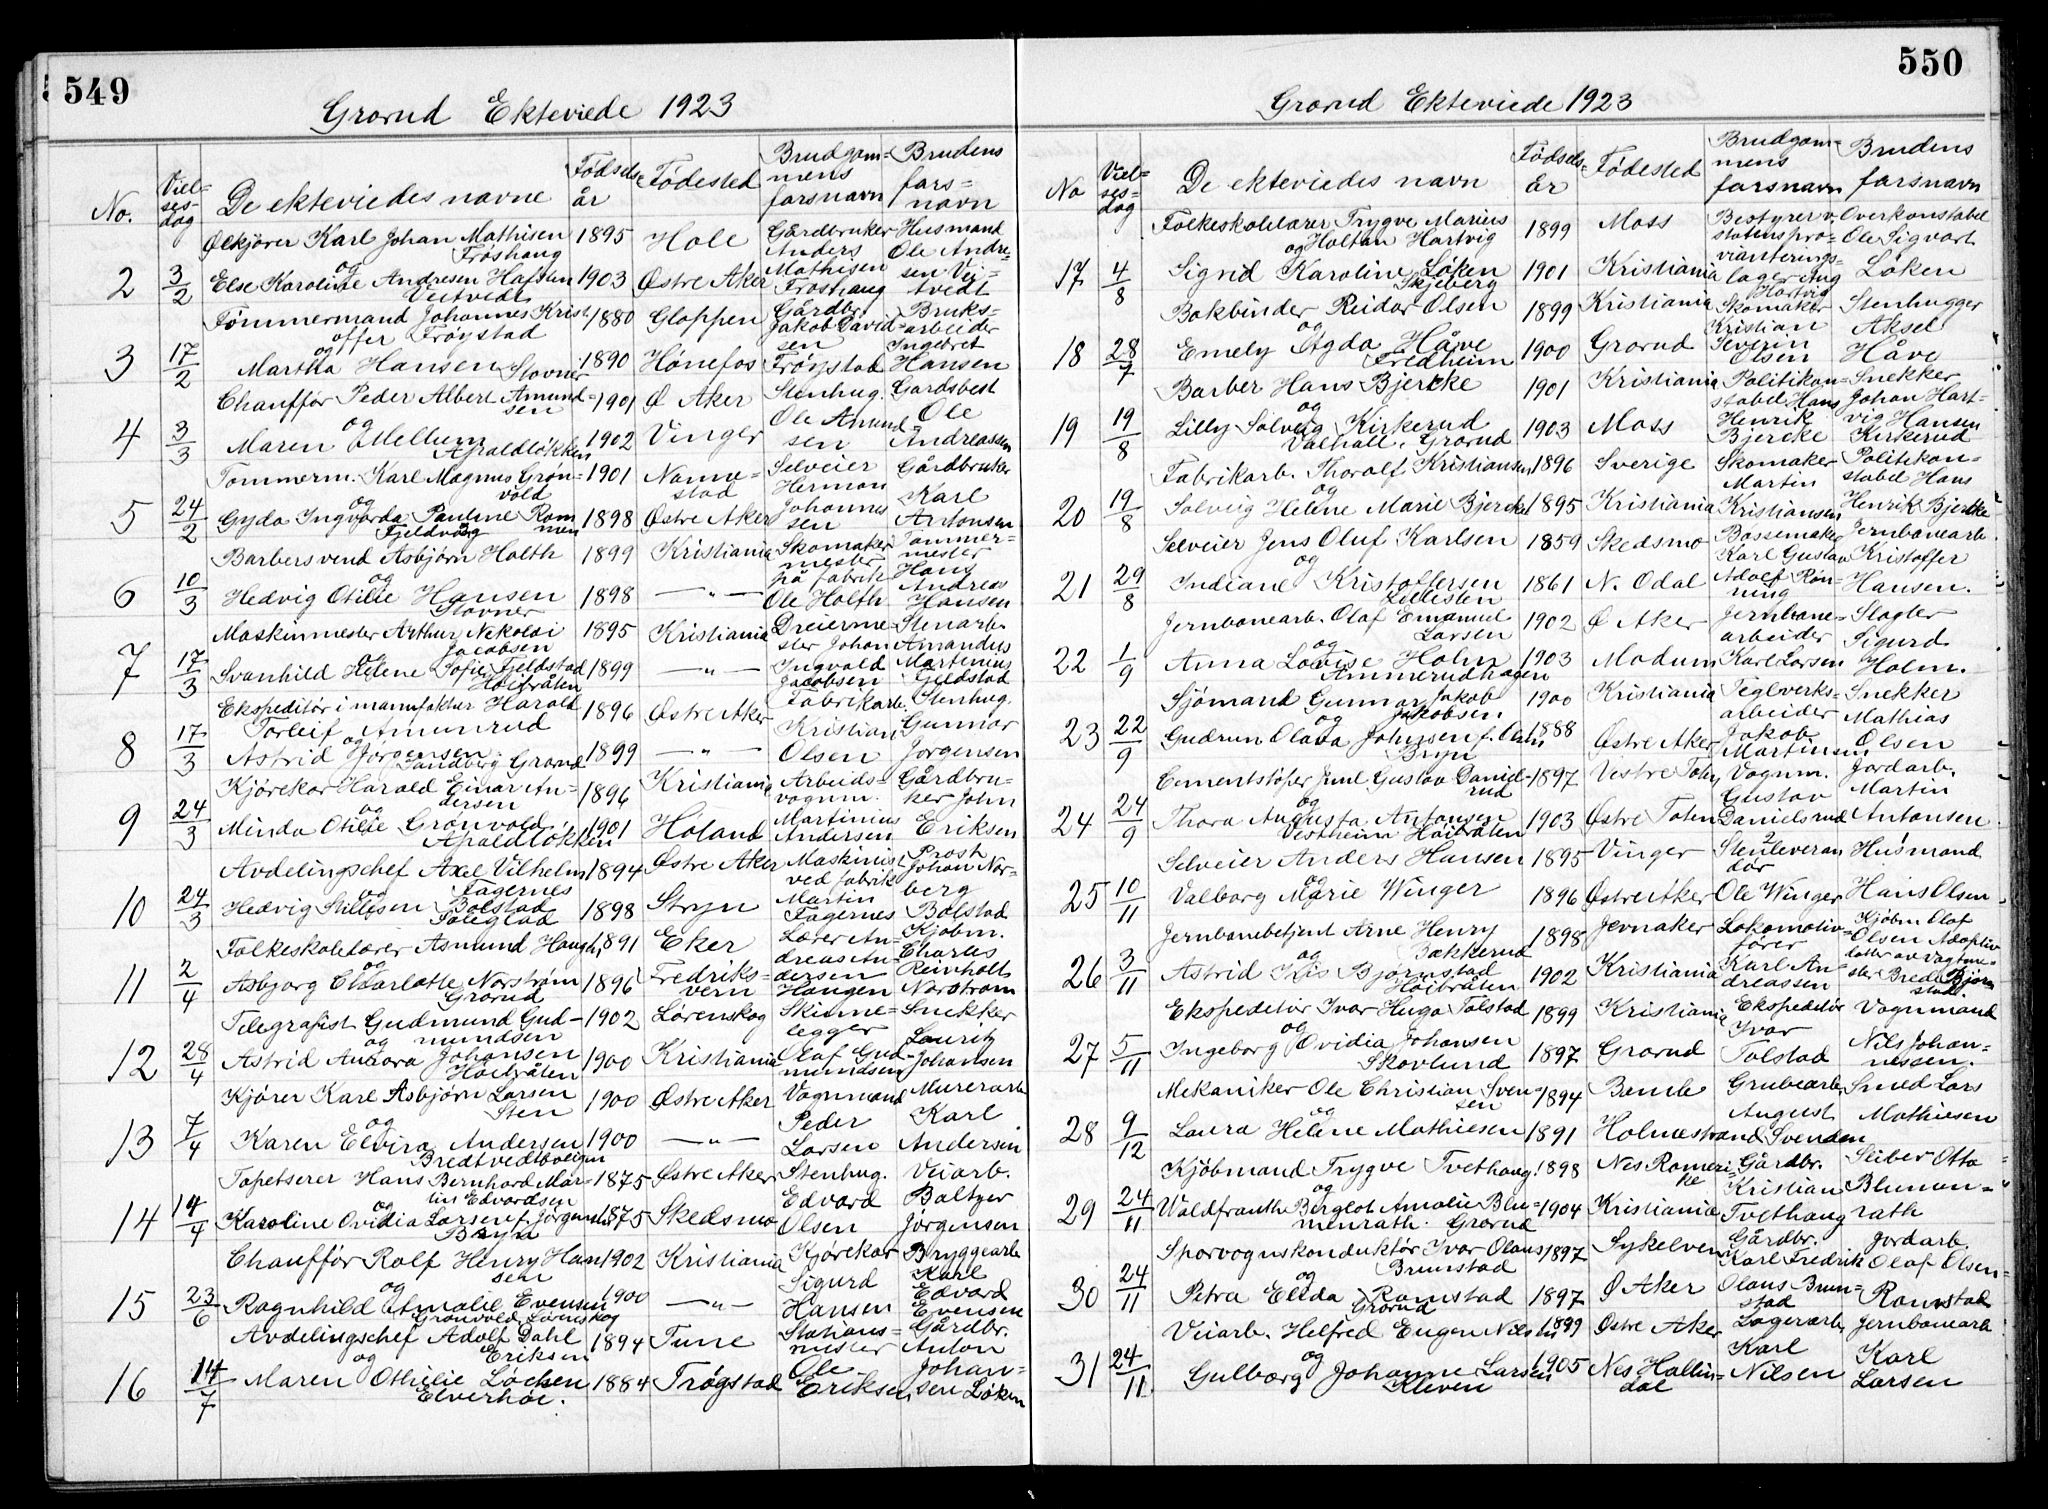 549
Grorud Ekteviede 1923
No. Viel-ses-dag De ekteviedes navne Fødsels-år Fødested Brudgom-mens farsnavn Brudens fars-navn
Ølkjører Karl Johan Mathisen Frøshaug 1895 Hole Gårdbruker Anders Mathisen Frøshaug Husmand Ole Andre-sen Vei-tvedt
2 3/2 og Else Karoline Andresen Veitvedt 1903 Østre Aker
Tømmermand Johannes Krist offer Frøystad 1880 Gloppen Gårdbr. Jakob David-sen Frøystad Bruks-arbeider Ingebret Hansen
3 17/2 og Martha Hansen Stovner 1890 Hønefos
Chauffør Peder Albert Amund-sen 1901 Ø Aker Stenhug. Ole Amund sen Gardsbest Ole Andreassen
4 3/3 og Maren Mellum Apaldløkken 1902 Vinger
Tommerm. Karl Magnus Grøn-vold 1901 Namsstad Selveier Herman Johannes sen Gårdbruker Karl Antonsen
5 24/2 og Gyda Ingvarda Pauline Rom men Fjeldvang 1898 Østre Aker
Barbersvend Asbjørn Holth 1899 Kristiania Skomaker mester på fabrik Ole Holth Tømmer-mester Hans Andreas Hansen
6 10/3 og Hedvig Otilie Hansen Stovner 1898 —"—
Maskinmester Arthur Nikolai Jacobsen 1895 Kristiania Dreierme-ster Johan Ingvald Jacobsen Stenarb. Amandus Martinius Fjeldstad
7 17/3 og Svanhild Helene Sofie Fjeldstad Høibråten 1899 —"—
Ekspeditør i manufaktur Harald Torleif Amunrud 1896 Østre Aker Fabrikarb. Kristian Olsen Stenhug. Gunnar Jørgensen
8 17/3 og Astrid Jørgensen Sandberg Grorud 1899 —"—
Kjørekar Harald Einar An-dersen 1896 Kristiania Arbeids-vognm. Martinius Andersen Gårdbru-ker John Eriksen
9 24/3 og Minda Otilie Grønvold Apaldløkken 1901 Høland
Avdelingschef Axel Vilhelm Fagernes 1894 Østre Aker Maskinist ved fabrik Martin Fagernes Prost Johan Nor-berg Bolstad
10 24/3 og Hedvig Bolstad Soleglad 1898 Stryn
Folkeskolelærer Asmund Haugen 1891 Eker Lærer An-dreas An-dersen Haugen Kjøbm. Charles Reinholt Norstrøm
11 2/4 og Asbjørg Charlotte Norstrøm Grorud 1896 Fredriks-vern
Telegrafist Gudmund Gud-mundsen 1902 Lørenskog Skinne-legger Olaf Gud-mundsen Snekker Lauritz Johansen
12 28/4 og Astrid Aurora Johansen Høibråten 1900 Kristiania
Kjører Karl Asbjørn Larsen Sten 1900 Østre Aker Vognmand Peder Larsen Murerarb Karl Andersen
13 7/4 og Karen Elvira Andersen Bredtvedtboligen 1900 —"—
Tapetserer Hans Bernhard Mar-tin Edvardsen 1875 Østre Aker Stenhug. Edvard Olsen Veiarb. Baltzer Jørgensen
14 14/4 og Karoline Ovidia Larsen f. Jørgensen Bryn 1875 Skedsmo
Chauffør Rolf Henry Han sen 1902 Kristiania Kjørekar Sigurd Hansen Bryggearb Karl Edvard Evensen
15 23/6 og Ragnhild Amalie Evensen Grønvold Lørenskog 1900 —"—
Avdelingschef Adolf Dahl Eriksen 1894 Tune Stations-mester Ole Eriksen Gårdbr. Anton Johan-sen Løken
16 14/7 og Maren Othilie Løchen Elverhøi. 1884 Trøgstad
550
Grorud Ekteviede 1923
No Viel-ses-dag De ekteviedes navn Fødsels-år Fødested Brudgom-mens farsnavn Brudens farsnavn
Folkeskolelærer Trygve Marius Holtan Hartvig 1899 Moss Bestyrer v. statens pro-vianterings-lager Aug Hartvig Overkonstabel Ole Sigvart Løken
17 4/8 og Sigrid Karoline Løken Skjeberg 1901 Kristiania
Bokbinder Reidar Olsen 1899 Kristiania Skomaker Kristian Severin Olsen Stenhugger Aksel Håve
18 28/7 og Emely Agda Håve Fredheim 1900 Grorud
Barber Hans Bjercke 1901 Kristiania Politikon-stabel Hans Henrik Bjercke Snekker Johan Hart-vig Hansen Kirkerud
19 19/8 og Lilly Solveig Kirkerud Valhall, Grorud 1903 Moss
Fabrikarb. Thoralf Kristiansen 1896 Sverige Skomaker Martin Kristiansen Politikon-stabel Hans Henrik Bjercke
20 19/8 og Solveig Helene Marie Bjercke 1895 Kristiania
Selveier Jens Oluf Karlsen 1859 Skedsmo Bøssemaker Karl Gustav Adolf Røn-ning Jernbanearb. Kristoffer Hansen.
21 29/8 og Indiane Kristoffersen Lillesten 1861 N. Odal
Jernbanearb. Olaf Emanuel Larsen 1902 Ø Aker Jernbane-arbeider Karl Larsen Slagter Sigurd Holm.
22 1/9 og Anna Lovise Holm Ammerudhagen 1903 Modum
Sjømand Gunnar Jakob Jakobsen 1900 Kristiania Teglverks-arbeider Jakob Martinsen Snekker Mathias Olsen
23 22/9 og Gudrun Olava Johnsen f. Olsen Bryn 1888 Østre Aker
Cementstøper Juul Gustav Daniel-rud 1897 Vestre Toten Vognm. Gustav Danielsrud Jordarb. Martin Antonsen
24 24/9 og Thora Augusta Antonsen Vestheim Høibråten 1903 Østre Toten
Selveier Anders Hansen 1895 Vinger Stenleveran dør Ole Winger Husmand Hans Olsen
25 10/11 og Valborg Marie Winger 1896 Østre Aker
Jernbanebetjent Arne Henry Bakkerud 1898 Jevnaker Lokomotiv-fører Karl An dreassen Kjøbm Olaf Olsen Adoptiv datter av Vogtme-ster Brede Bjørn stad
26 3/11 og Astrid Bjørnstad Høibråten 1902 Kristiania
Ekspeditør Ivar Hugo Tolstad 1899 Kristiania Ekspeditør Ivar Tolstad Vognmand Nils Johan-nessen.
27 5/11 og Ingeborg Ovidia Johansen Skovlund 1897 Grorud
Mekaniker Ole Christian Sven sen 1894 Bamle Grubearb. August Svendsen Smed Lars Mathiesen
28 9/12 og Laura Helene Mathiesen 1891 Holmestrand
Kjøbmand Trygve Tvethaug 1898 Nes Romeri-ke Gårdbr. Kristian Tvethaug Seiber Otto Blumen-rath
29 24/11 og Waldfrauth Bergliot Amalie Blu-menrath. Grorud 1904 Kristiania
Sporvognskonduktør Ivar Olaus Brunstad 1897 Sykelven Gårdbr. Karl Fredrik Olaus Brun-stad Jordarb. Olaf Olsen Romstad
30 24/11 og Petra Elida Romstad Grorud 1897 Ø Aker
Veiarb. Helfred Eugen Nilsen 1899 Østre Aker Lagerarb. Karl Nilsen Jernbanearb Karl Larsen
31 24/11 og Gulborg Johanne Larsen Kleven 1905 Nes Hallin-dal